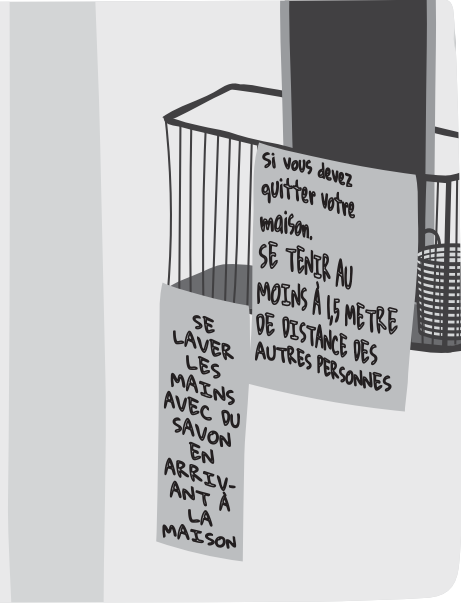 Si vous devez
quitter votre
maison,
SE TENIR AU
MOINS À 1,5 MÈTRE
DE DISTANCE DES
AUTRES PERSONNES
SE
LAVER
LES
MAINS
AVEC DU
SAVON
EN
ARRIV-
ANT À
LA
MAISON